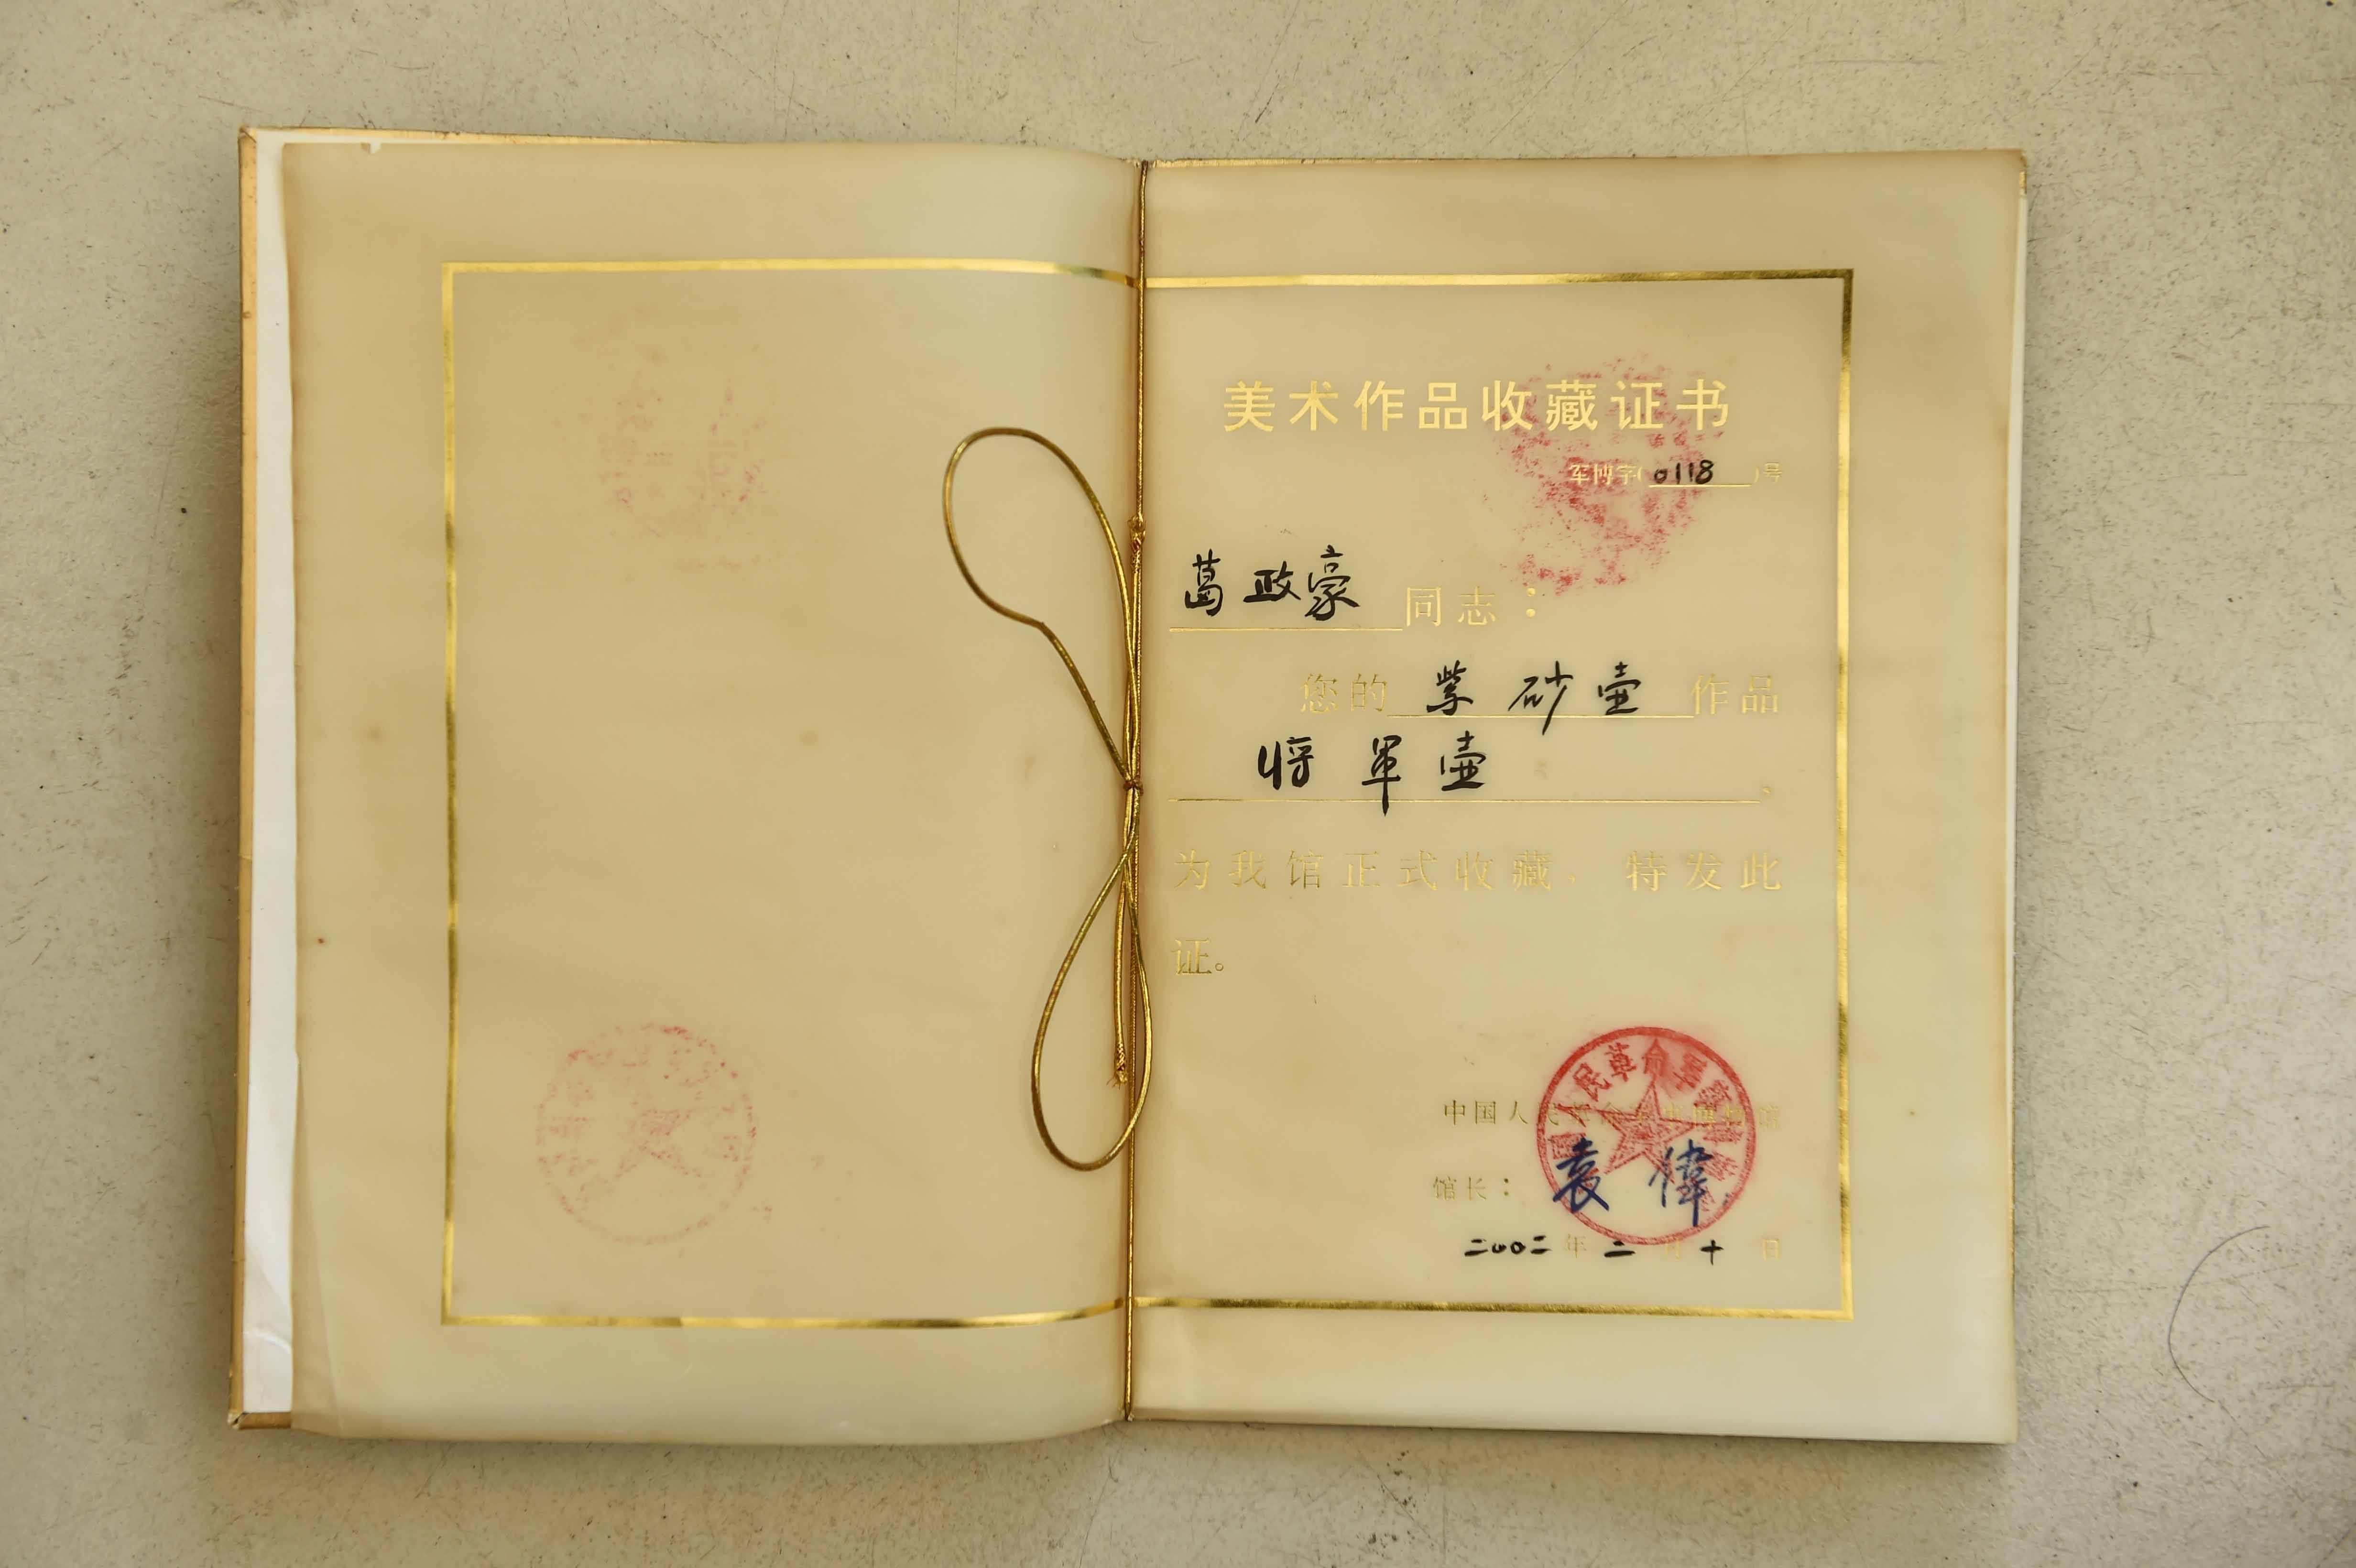 美术作品收藏证书
军博字(0118)号
葛政豪同志:
您的紫砂壶作品
将军壶、
为我馆正式收藏、特发此
证。
中国人民革命军事博物馆
馆长:袁偉
二〇〇二年二月十日